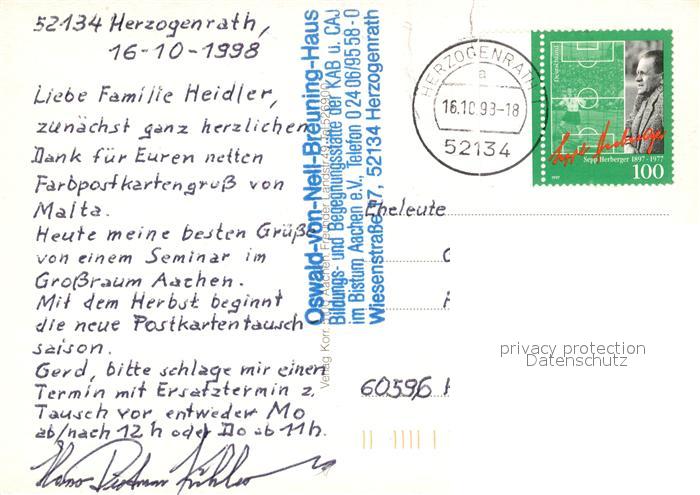 52134 Herzogenrath,
16-10-1998
Liebe Familie Heidler,
zunächst ganz herzlichen
Dank für Euren netten
Farbpostkartengruß von
Malta.
Heute meine besten Grüße
von einem Seminar im
Großraum Aachen.
Mit dem Herbst beginnt
die neue Postkartentausch
saison.
Gerd, bitte schlage mir einen
Termin mit Ersatztermin z.
Tausch vor entweder Mo
ab/nach 12h oder Do ab 11h.
Oswald-von-Nell-Breuning-Haus
Bildungs- und Begegnungsstätte der KAB u. CAJ
im Bistum Aachen e.V., Telefon 0 24 06/95 58-0
Wiesenstraße 17, 52134 Herzogenrath
Verlag Korr, Aachen, Freunder Landstr.
HERZOGENRATH 1
a
16.10.98-18
52134
Deutschland
Sepp Herberger
Sepp Herberger 1897-1977
1997
100
Eheleute
60596
privacy protection
Datenschutz